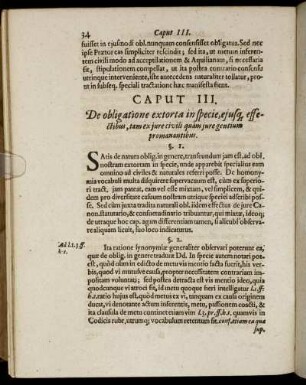 34 Caput III.
fuisset in ejusmodi obl. nunquam consensisset obligatus. Sed nec
ipse Prætor eas simpliciter rescindit; sed ita, ut metum inferen-
tem civili modo ad acceptilationem & Aquilianam, si necessaria
sit, stipulationem compellat, ut ita postea contrario consensu
utrinque interveniente, iste antecedens naturaliter tollatur, pro-
ut in subseq. speciali tractatione hæc manifesta fient.
CAPUT III.
De obligatione extorta in specie, ejusq; effe-
ctibus, tam ex jure civili quàm jure gentium
promanantibus.
§. 1.
SAtis de natura oblig. in genere, transeundum jam est. ad obl.
nostram extortam in specie, unde apparebit specialius eam
omnino ad civiles & naturales referri posse. De homony-
mia vocabuli amplius disquirere supervacuum est, cum ex superio-
ri tract. jam pateat, eam vel pro mixtim, vel simpliciter, &
quidem pro diversitate eorum nostrum utrique speciei adscribi posse.
Sed cum juxta traditas naturali obl. idem effectus de jure Ca-
non. statutario, & consuetudinario tribuantur, qui mixtæ, ideoq;
de utraque hoc cap. agam differentiam tamen, si alicubi observa-
re aliquam liceat, suo loco indicaturus.
§. 2.
Ad l. 1. 3. ff.
h. t.
Ita ratione synonymiæ generaliter observari poterunt ea,
quæ de oblig. in genere traduntur Dd. In specie autem notari pot-
est, quòd olim in edicto de metu vis mentio facta fuerit, his ver-
bis, quod vi metusve causa, propter necessitatem contrariam im-
positam voluntati; sed postea detracta est vis mentio ideo, quia
quodcunque vi atroci fit, id metu quoque fieri intelligatur l. 1. ff.
h. t. ratio hujus est, quod metus ex vi, tanquam ex causa originem
ducat, vi denotante actum inferentis, metu, passionem coacti, &
ita clausula de metu commineat eum vim l. 3. pr. ff. h. t. quamvis in
Codicis rubr. utrumq; vocabulum retentum sit. conf. etiam ea quæ
sup.